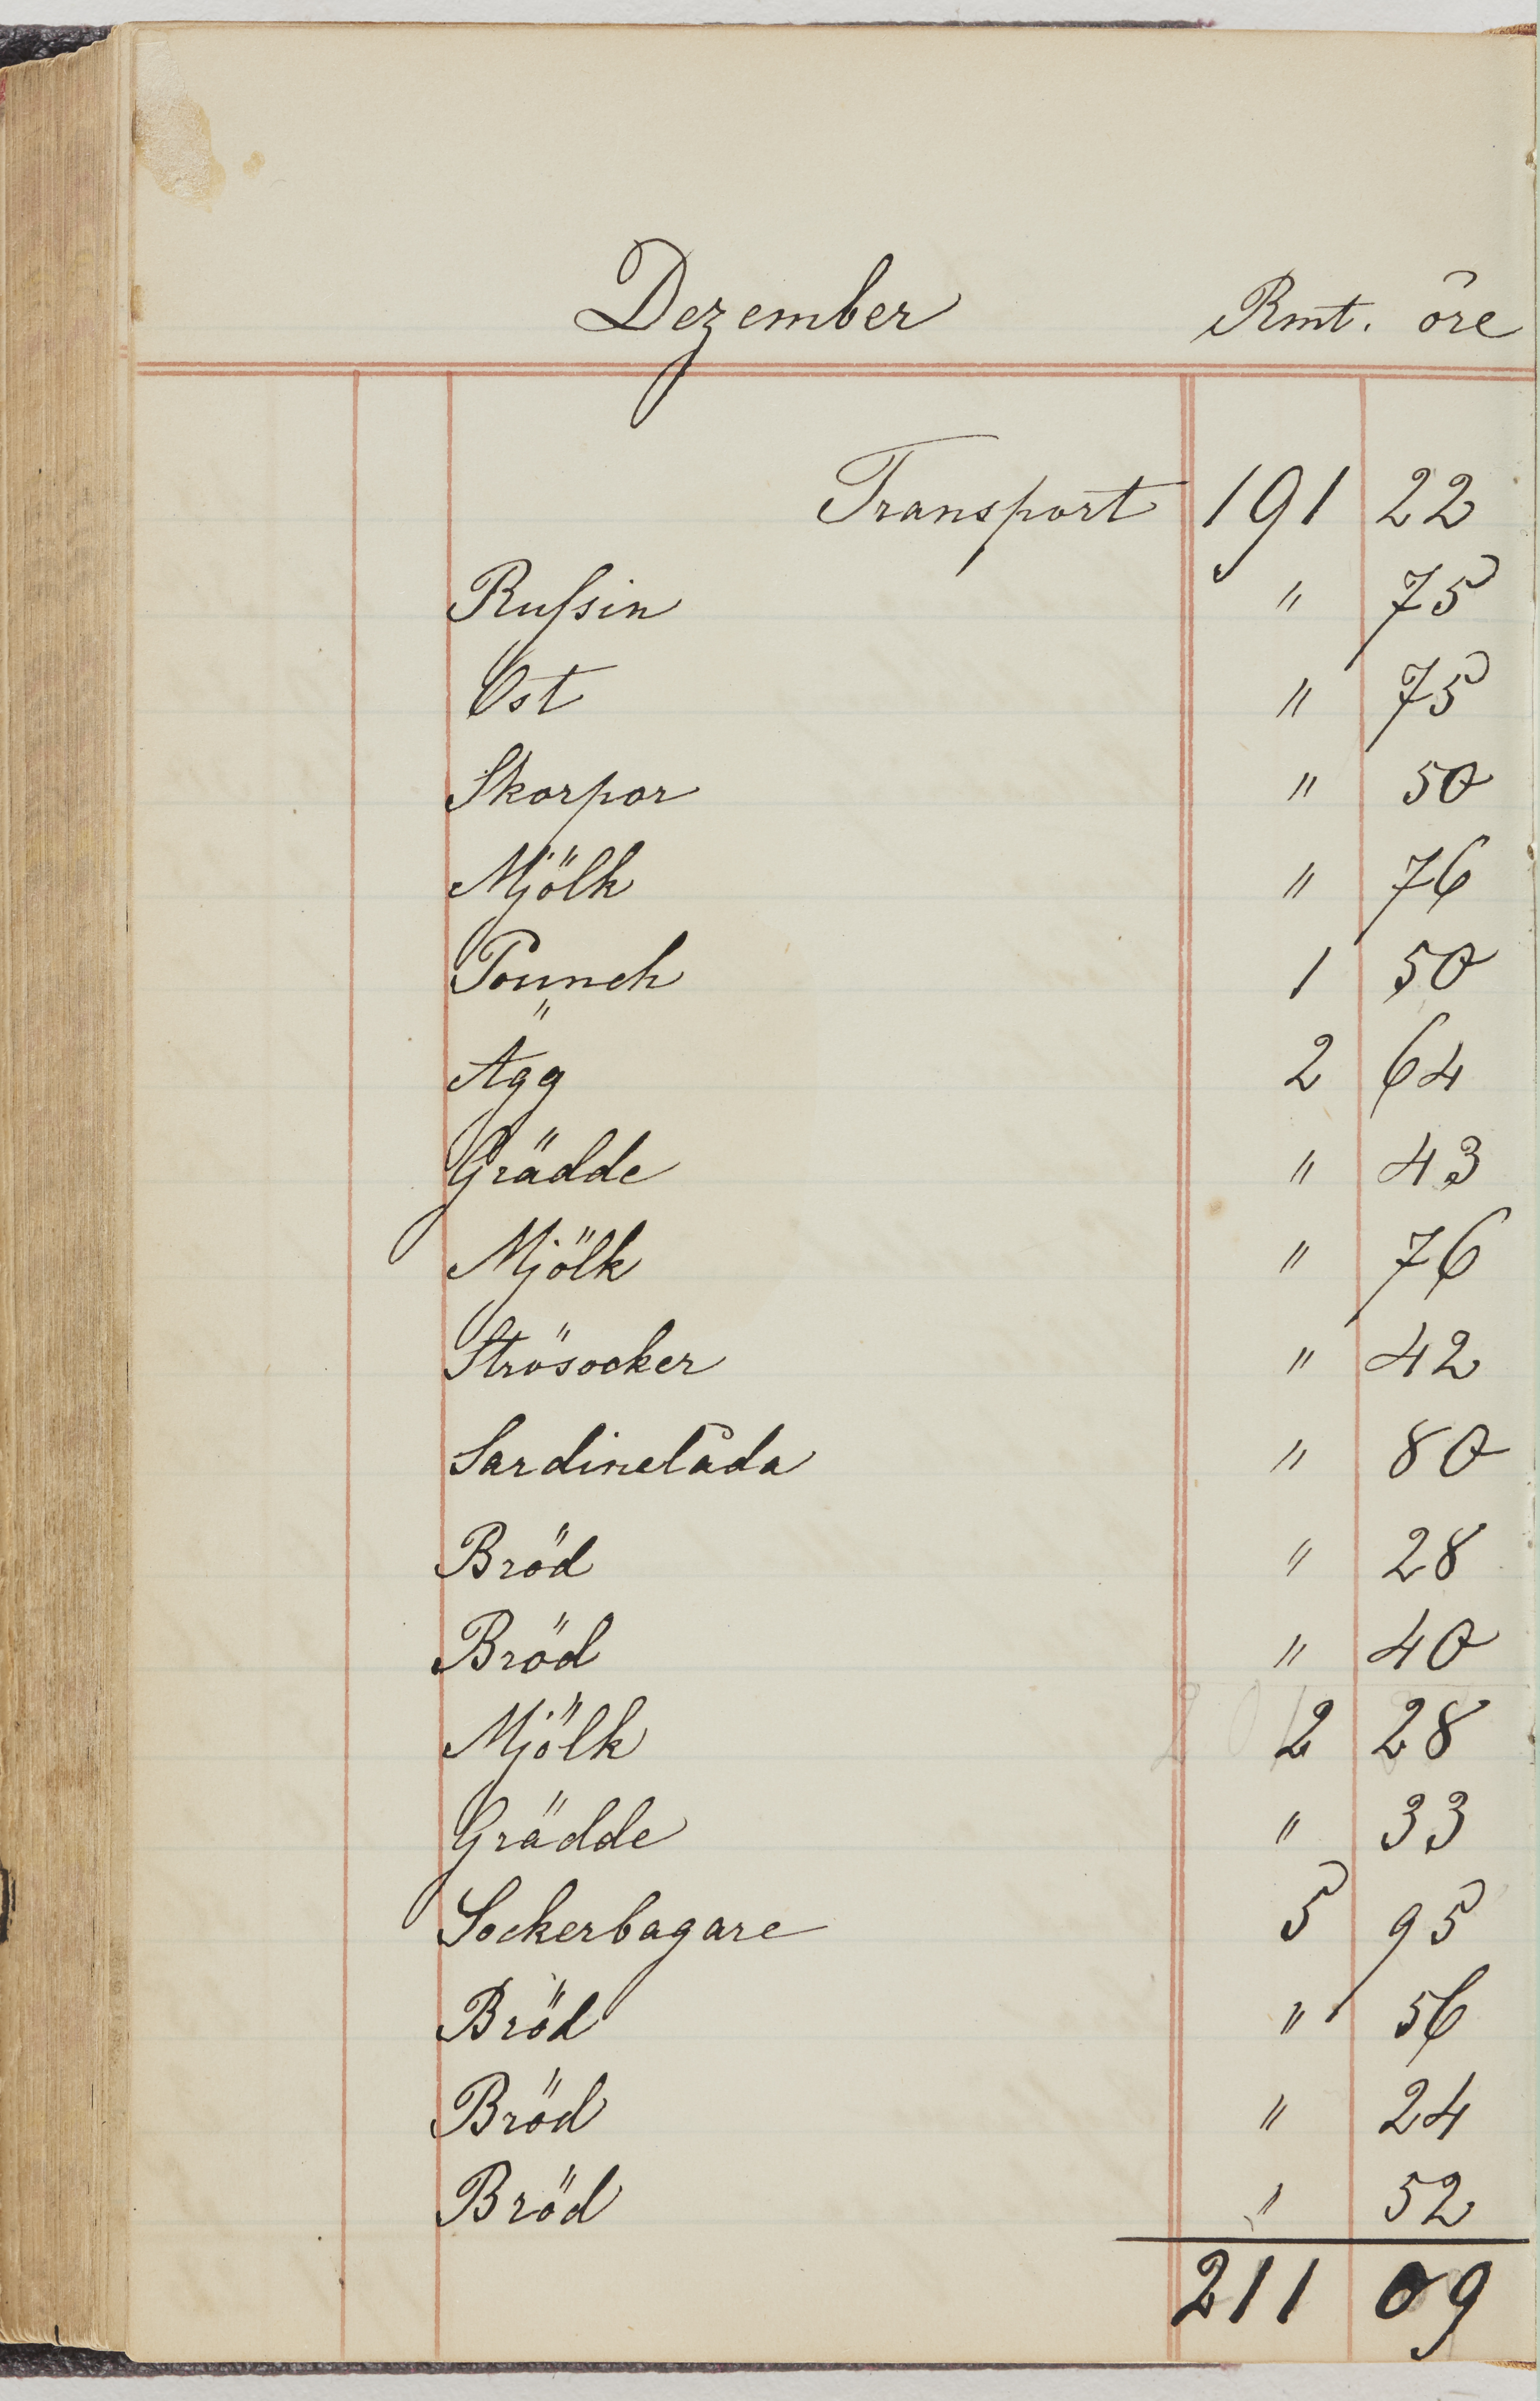 Dezember Rmt. öre
Transport 191 22
Rufsin " 75
Ost " 75
Skorpor " 50
Mjölk " 76
Pounch 1 50
Ägg 2 64
Grädde " 43
Mjölk " 76
Strösocker " 42
Sardinelåda " 80
Bröd " 28
Bröd " 40
Mjölk 2 28
Grädde " 33
Sockerbagare 5 95
Bröd " 56
Bröd " 24
Bröd " 52
211 09